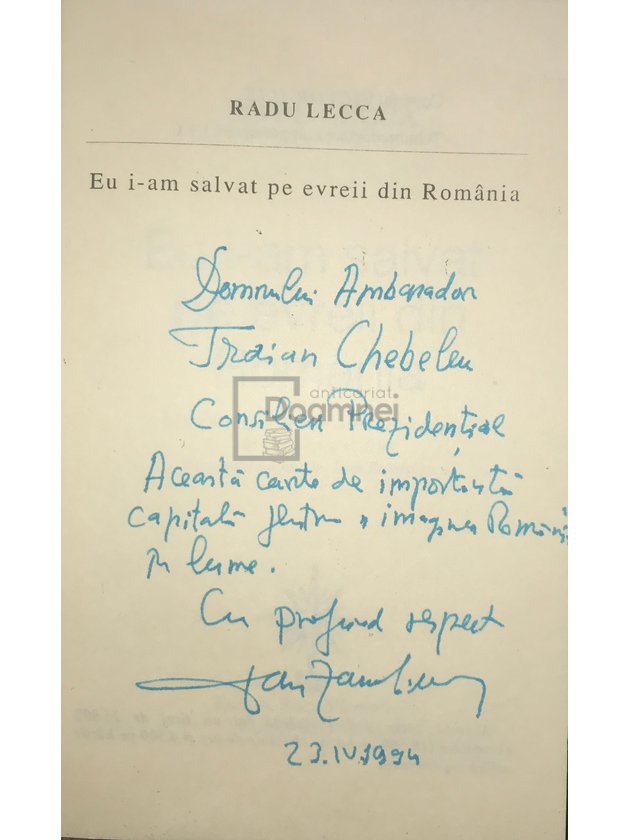 RADU LECCA
Eu i-am salvat pe evreii din România
Domnului Ambasador
Traian Chebeleu
anticariat
Doamnei
Consilier Prezidențial
Această carte de importanță
capitală pentru imaginea României
în lume.
Cu profund respect
23.IV.1994